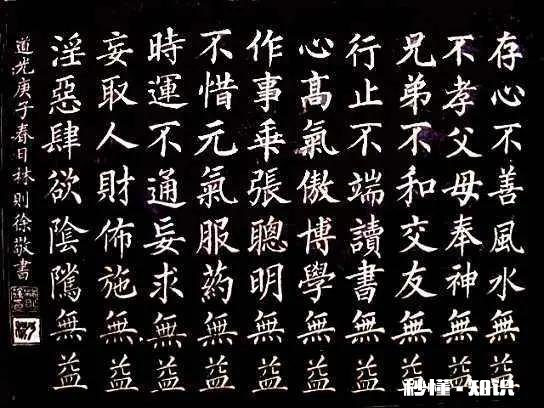 存心不善風水無益
不孝父母奉神無益
兄弟不和交友無益
行止不端讀書無益
心高氣傲博學無益
作事乖張聰明無益
不惜元氣服药無益
時運不通妄求無益
妄取人財佈施無益
淫惡肆欲陰隲無益
道光庚子春日林則徐敬書
秒懂·知识